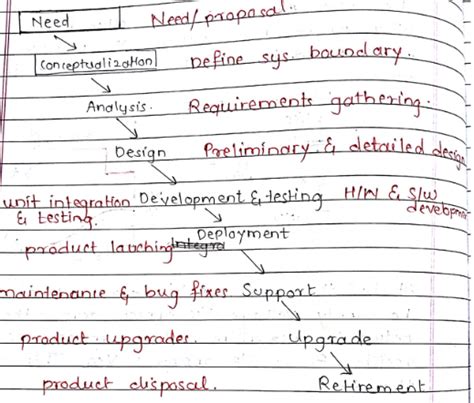 Need Need/proposal.
Conceptualization Define sys. boundary.
Analysis. Requirements gathering.
Design Preliminary & detailed design
unit integration Development & testing H/W & S/W
& testing. developme
Deployment
product lauching Integra
maintenanie & bug fixes Support
product upgrades. Upgrade
product disposal. Retirement